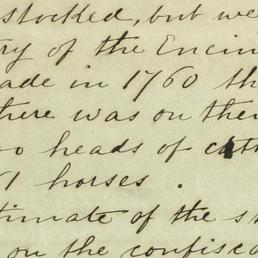 stocked, but we
ry of the Encin
ade in 1760 th
here was on the
oo heads of catt
61 horses.
timate of the s
on the confisca